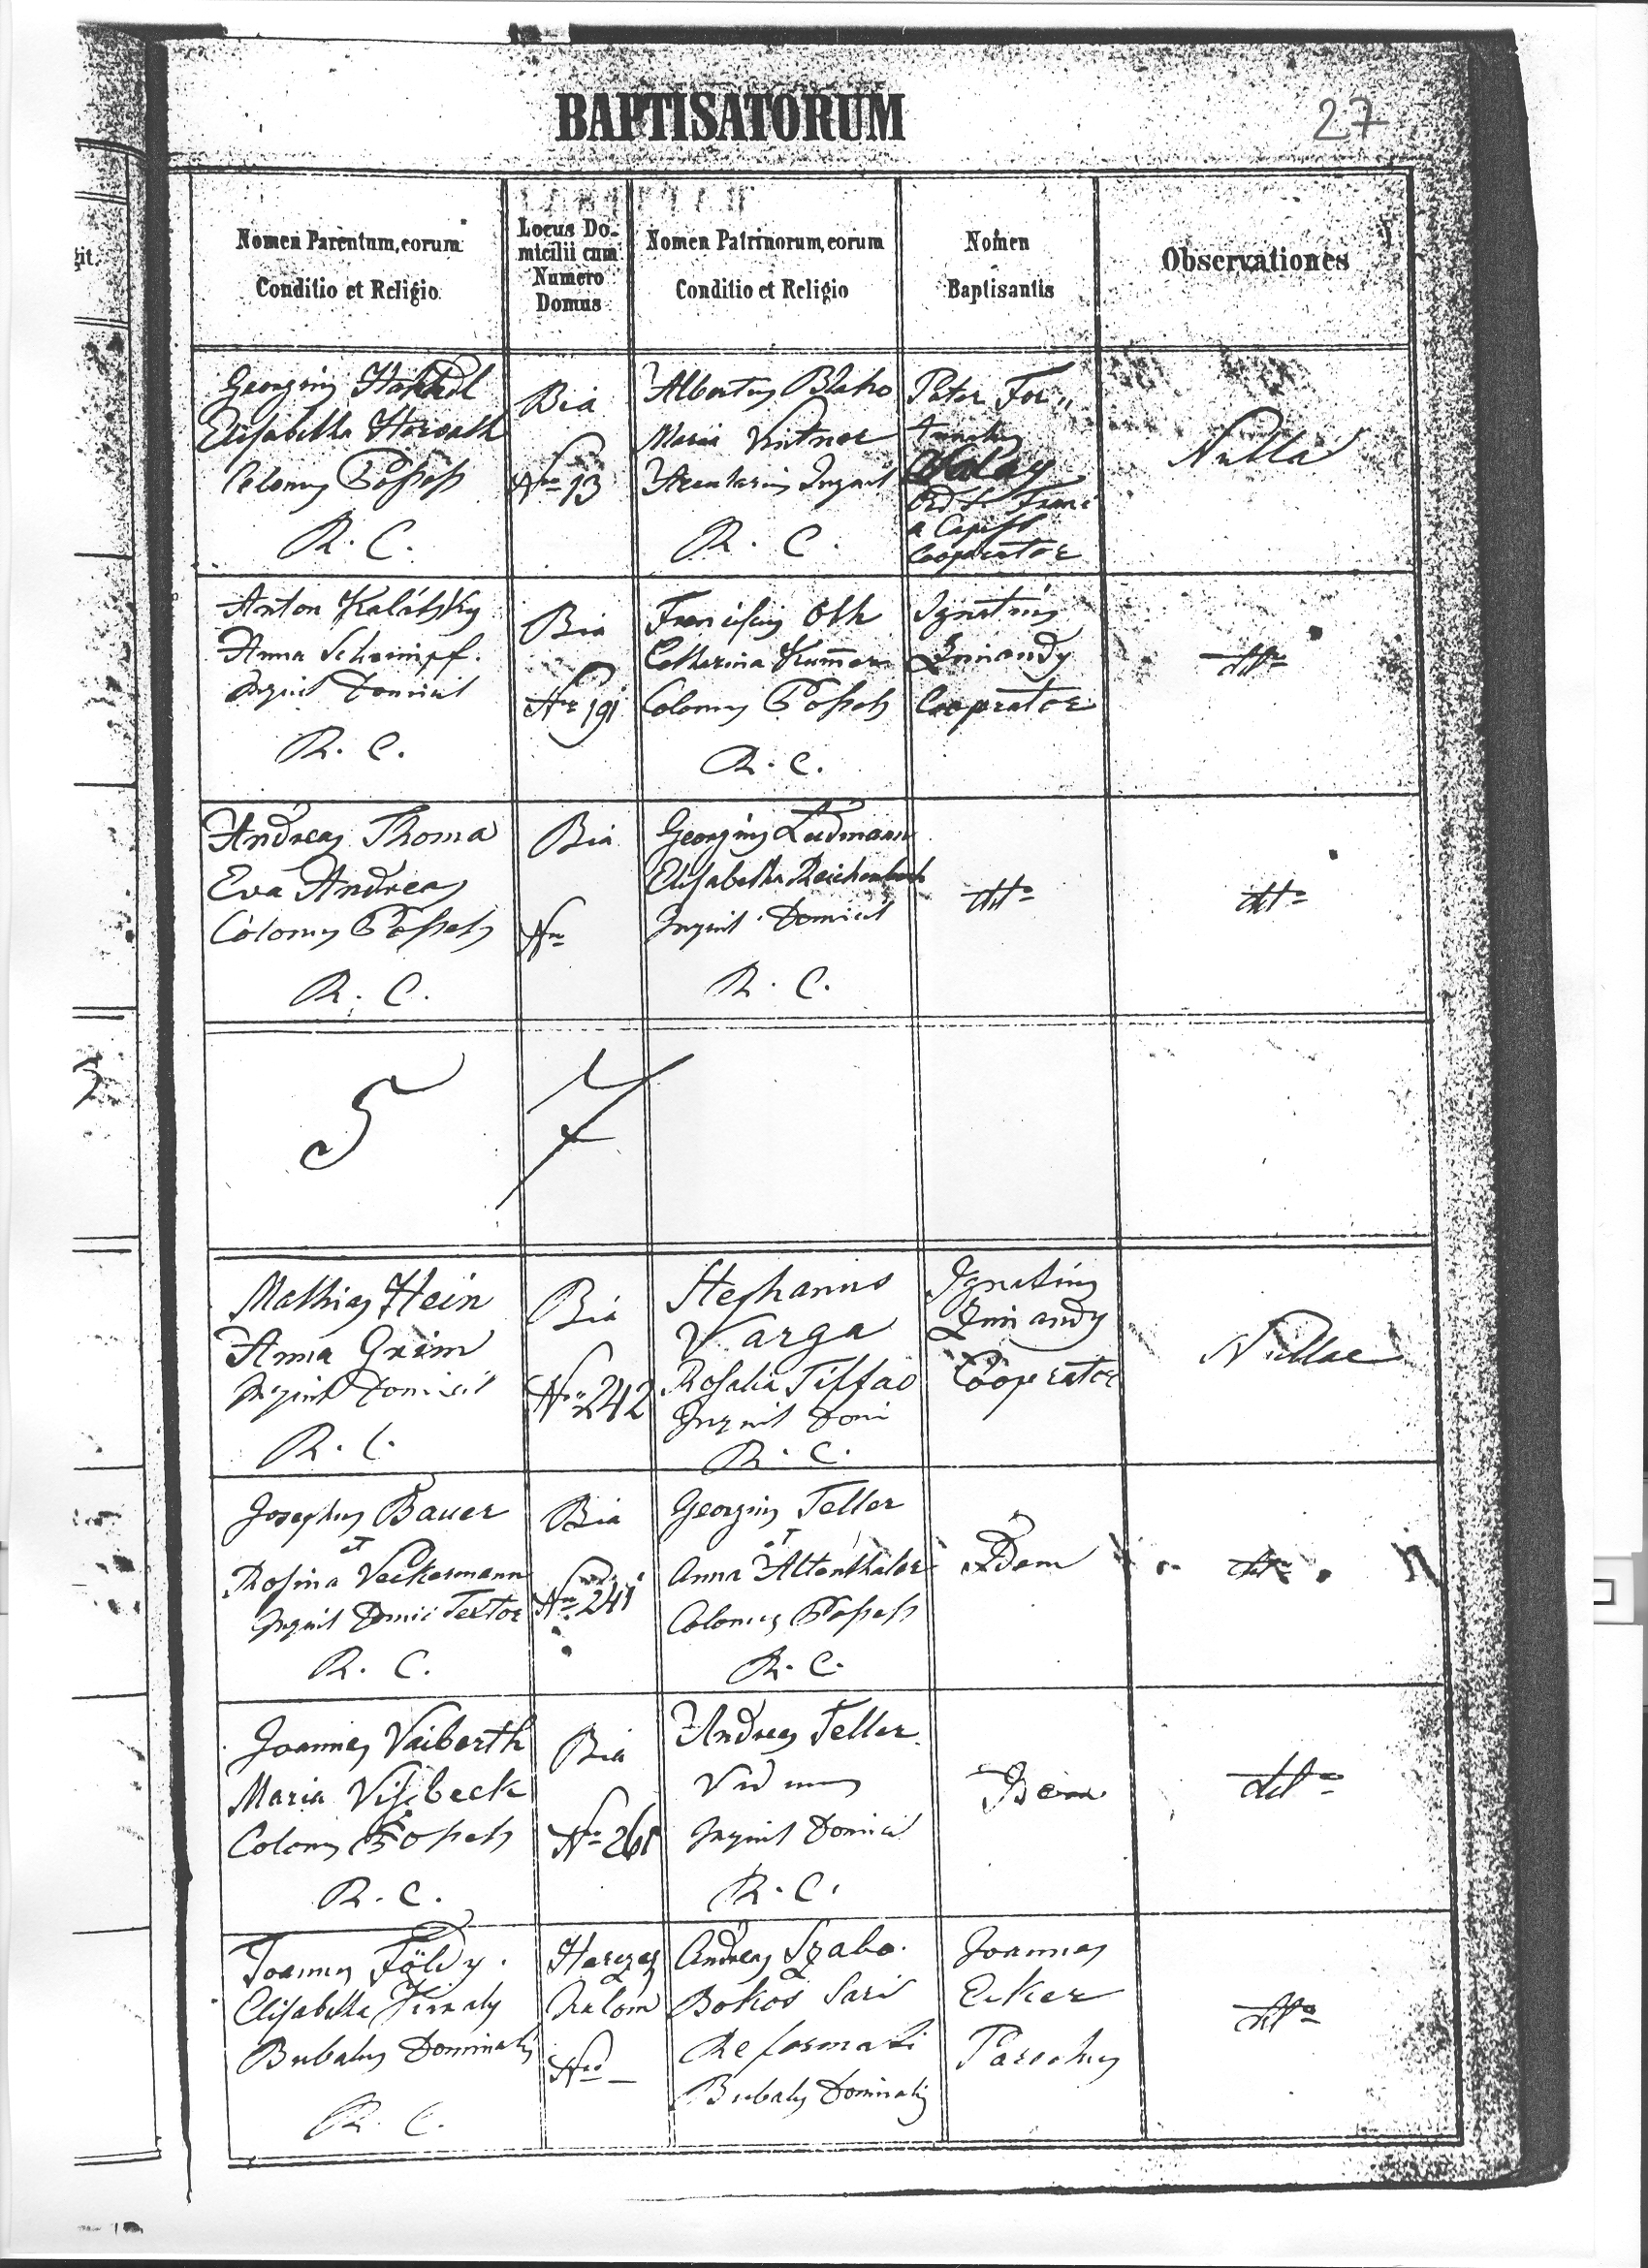 BAPTISATORUM
27
Nomen Parentum, eorum
Conditio et Religio
Locus Do-
micilii cum
Numero
Domus
Nomen Patrinorum, eorum
Conditio et Religio
Nomen
Baptisantis
Observationes
git.
Georgius
Elisabetha Horvath
Colonus Possess
R. C.
Bia
Nro 13
Albertus Blaho
Maria Vintner
Inquil
R. C.
Pater For„
tunatus
Ord S. Franc
a Capist
Cooperator
Nulla
Anton Kalátsky
Anna Schrimpf.
Inquil Domicil
R. C.
Bia
Nro 191
Franciscus Oth
Catharina Kum̅er
Colonus Possess
R. C.
Ignatius
Zimandy
Cooperator
dtto
Andreas Thoma
Eva Andreas
Colonus Possess
R. C.
Bia
Nro
Georgius Ludmann
Elisabetha Reichenbach
Inquil Domicil
R. C.
dtto
dtto
5 7
Mathias Hein
Anna Grim
Inquil Domicil
R. C.
Bia
Nro 242
Stephanus
Varga
Rosalia Tiffao
Inquil Domi
R. C.
Ignatius
Zimandy
Cooperator
Nullae
Josephus Bauer
et
Rosina Veckermann
Inquil Domic Textor
R. C.
Bia
Nro 241
Georgius Teller
et
Anna Altenthaler
Colonus Possess
R. C.
Idem
dtto
Joannes Vaiberth
Maria Visibeck
Colonus Possess
R. C.
Bia
Nro 261
Andreas Teller
Viduus
Inquil Domicil
R. C.
Idem
dtto
Joannes Földy.
Elisabetha Kiraly
Bubalus Dominalis
R. C.
Herczeg
halom
Nro –
Andreas Szabo.
Bokos Sari
Reformati
Bubalus Dominalis
Joannes
Ecker
Parochus
dtto